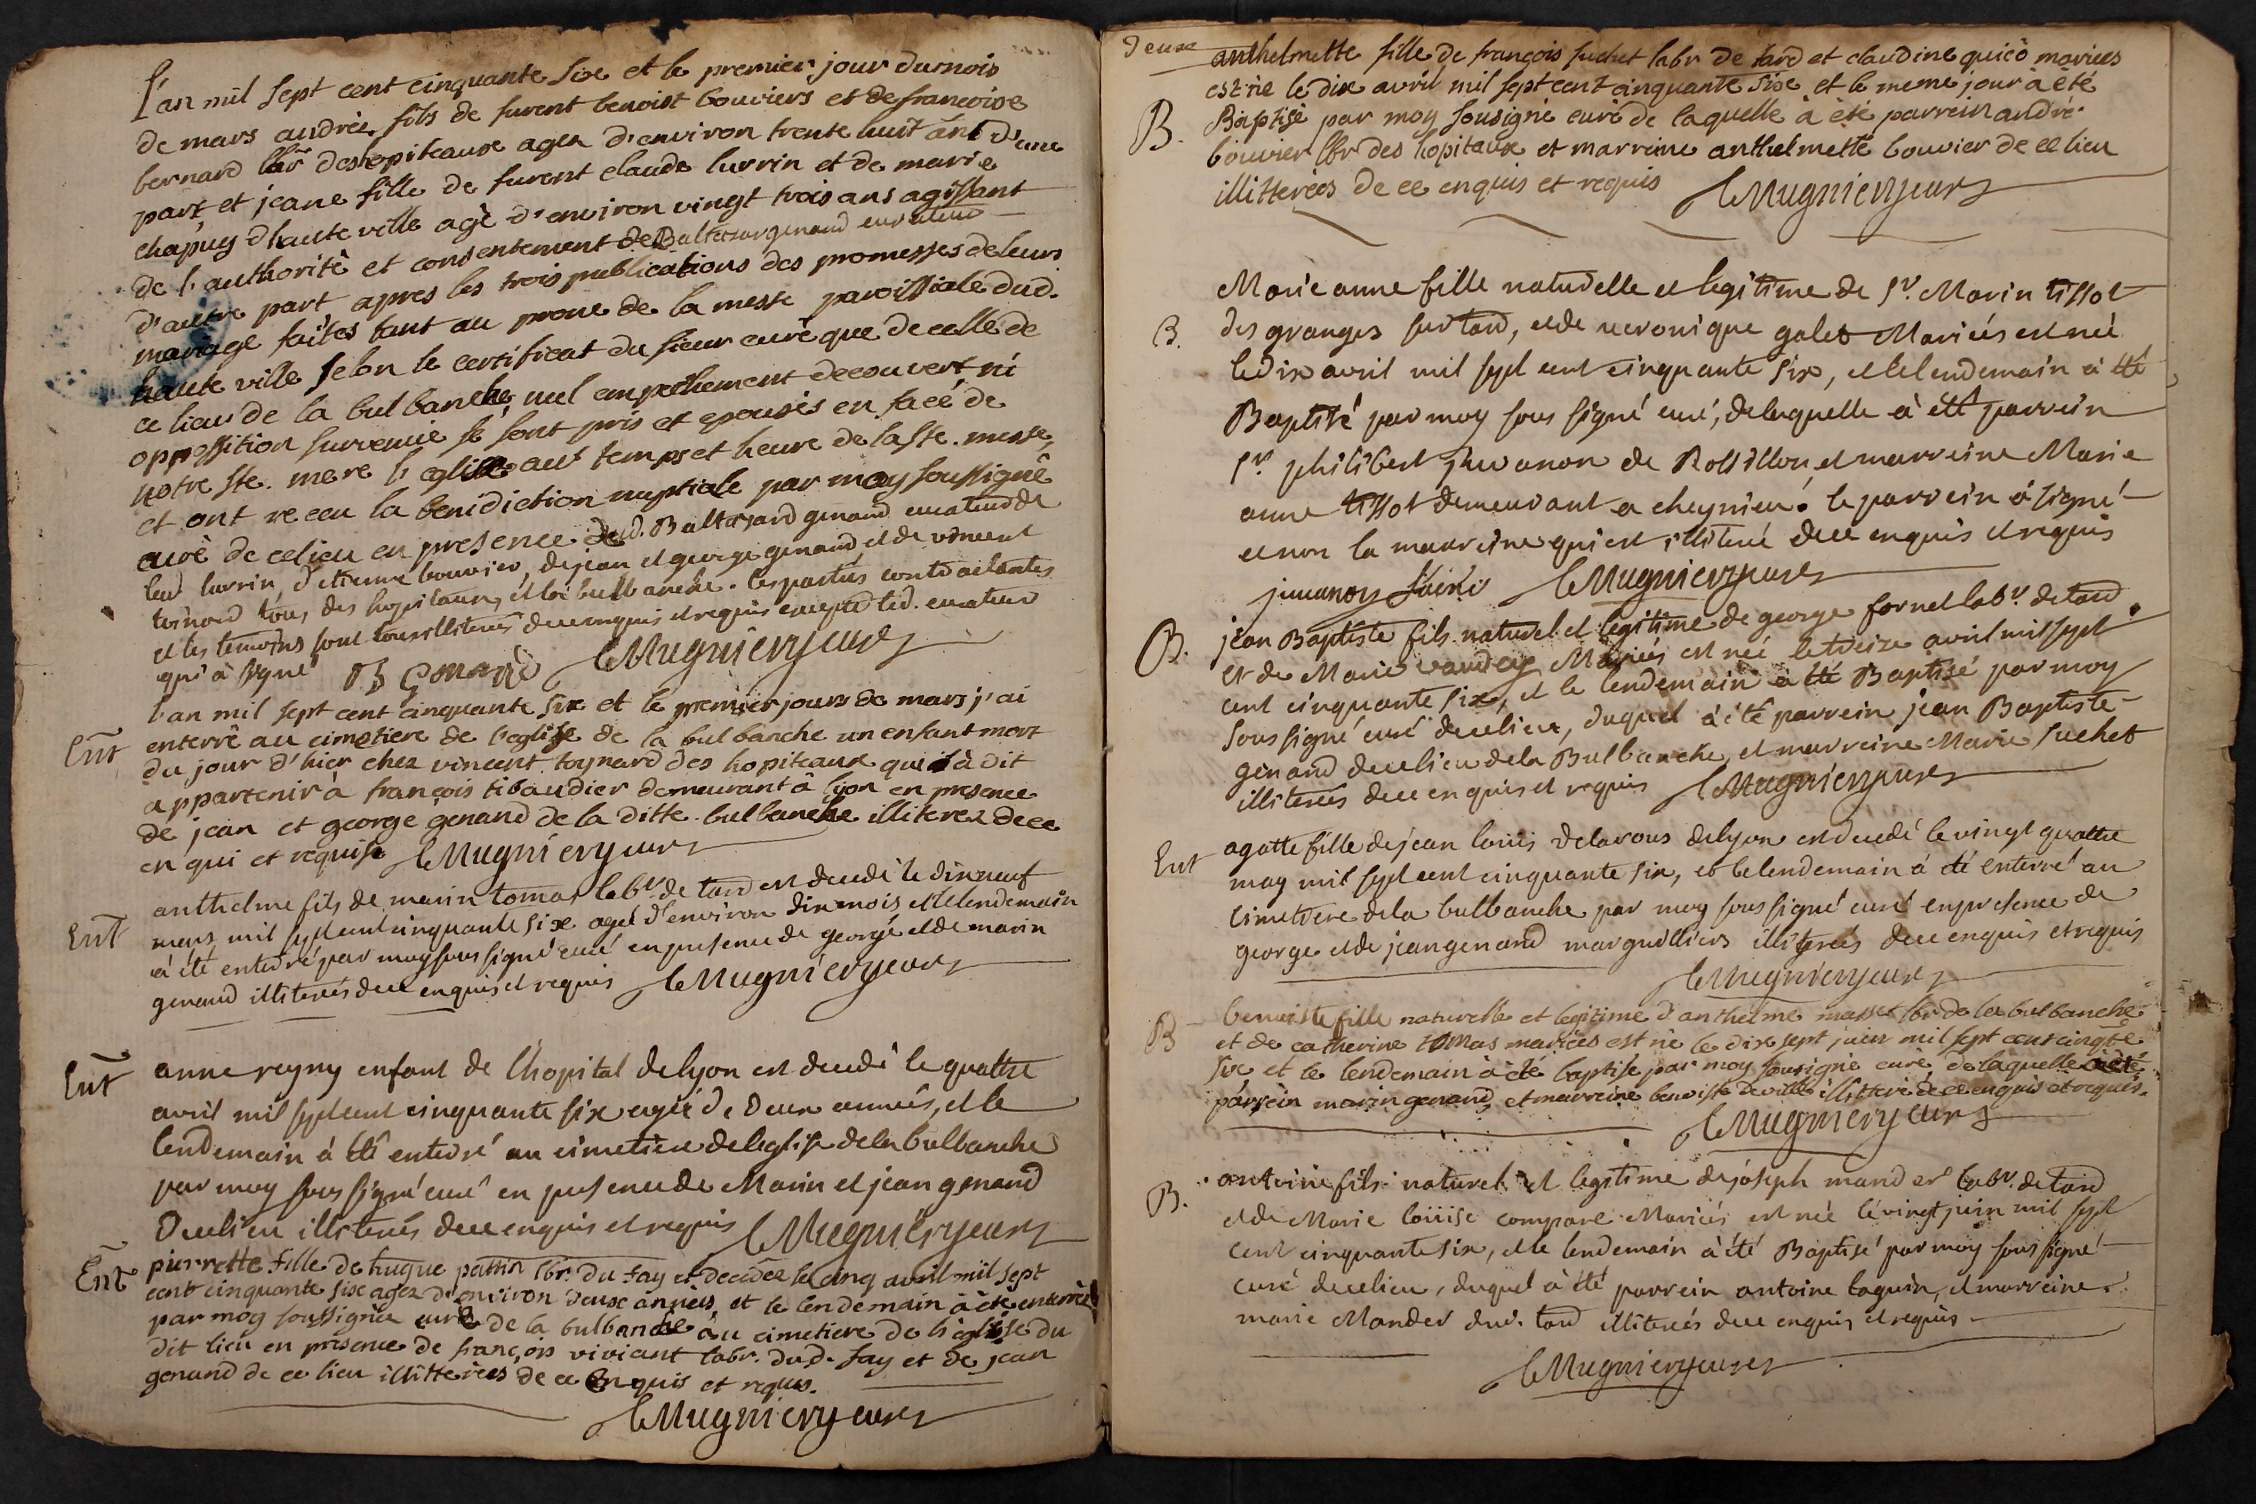 L'an mil sept cent cinquante sixe et le premier jour du mois
de mars andrée fils de furent benoist bouviers et de francoise
bernard labr des hopiteaux agea d'environ trente huit ans d'une
part et jeane fille de furent claude lurrin et de marie
chapuy d'haute ville agè d'environ vingt trois ans agissant
de l'authorité et consentement de Baltesar genand curateur
d'autre part apres les trois publications des promesses de leurs
mariage faites tant au prone de la messe paroissiale dud.
haute ville selon le certificat du sieur curè que de celle de
ce lieu de la bulbanche, nul empechement decouvert ni
oppossition survenue se sont pris et epousés en face de
notre ste. mere l'eglise aus temps et heure de la ste. messe,
et ont receu la benidiction nuptiale par moy soussignê
curè de ce lieu en presence dud. Baltasard genand curateur de
lad lurrin, d'etienne bouvier, de jean et george genand et de vincent
toinard tous des hopitaux, et la bulbanche. les parties contractantes
et les temoins sont tous illiterés de ce enquis et requis excepté led. curateur
qui à signé B Genand C Mugniery curé
l'an mil sept cent cinquante six et le premier jours de mars j'ai
Ent enterrê au cimetiere de l'eglise de la bulbanche un enfant mort
du jour d'hier chez vincent toynard des hopiteaux qu'il à dit
appartenir à françois tibaudier demeurant â lyon en presence
de jean et george genand de la ditte bulbanche illiterez de ce
en qui et requise C Mugniery curé
anthelme fils de marin tomas labr. de tard est decedé le dixneuf
Ent mars mil sept cent cinquante sixe agé d'environ dix mois et le lendemain
à été enterré par moy sous signé curé en presence de george et de marin
genand illiterés de ce enquis et requis C Mugniery curé
Ent anne reyny enfant de l'hopital de lyon est decedé le quattre
avril mil sept cent cinquante six agée de deux années, et le
lendemain à êtê enterré au cimetiere de leglise de la bulbanche
par moy sous signé curé en presence de Marin et jean genand
de ce lieu illiterés de ce enquis et requis C Mugniery curé
Ent pierrette fille de hugue pattin lbr. du fay et decedée le cinq avril mil sept
cent cinquante sixe agez d'environ deux années, et le lendemain à étè enterrèe
par moy soussignée curè de la bulbanche au cimetiere de l'eglise du
dit lieu en presence de françois viviant labr. dud. fay et de jean
genand de ce lieu illitterées de ce enquis et requis.
C Mugniery curé
deuxe anthelmette fille de françois suchet labr de tard et claudine mariees
est nè le dix avril mil sept cent cinquante sixe et le meme jour à été
B. Baptisè par moy sousigné curè de laquelle à étè parrein andrè
bouvier lbr des hopitaux et marreine anthelmette bouvier de ce lieu
illitterées de ce enquis et requis C Mugniery curé
Marie anne fille naturelle et legitime de Sr. Marin tissot
B. des granges sur tard, et de veronique galet Mariés est née
le dix avril mil sept cent cinquante six, et le lendemain à été
Baptisé par moy sous signé curé, de laquelle à été parrein
Sr. philibert juvanon de Rossillon et marreine Marie
anne tissot demeurant a cheynieu. le parrein à signé
et non la marreine qui est illiteré de ce enquis et requis
juvanon C Mugniery curé
B. jean Baptiste fils naturel et legitime de george fornel labr. de tard
et de Marie vandey Mariés est né le treize avril mil sept
cent cinquante six, et le lendemain à été Baptisé par moy
sous signé curé de ce lieu, duquel à été parrein jean Baptiste
genand de ce lieu de la Bulbanche, et marreine Marie suchet
illiterés de ce enquis et requis C Mugniery curé
Ent agatte fille de jean louis delarous de lyon est decedé le vingt quattre
may mil sept cent cinquante six, et le lendemain à été enterré au
cimetiere de la bulbanche par moy sous signé curé en presence de
george et de jean genand marguilliers illiterés de ce enquis et requis
C Mugniery curé
B benoiste fille naturelle et legitime d'anthelme masset lbr de la bulbanche
et de catherine tomas mariées est nè le dix sept juin mil sept cent cinqte
six et le lendemain à été baptisé par moy sousigné curé, de laquelle à été
parrein marin genand, et marreine benoiste deville illitteré de ce enquis et requis.
C Mugniery curé
B. antoine fils naturel et legitime de joseph mander labr. de tard
et de Marie louise compare Mariés est né le vingt juin mil sept
cent cinquante six, et le lendemain à été Baptisé par moy sous signé
curé de ce lieu, duquel à été parrein antoine taquin, et marreine
marie Mander dud. tard illiterés de ce enquis et requis
C Mugniery curé